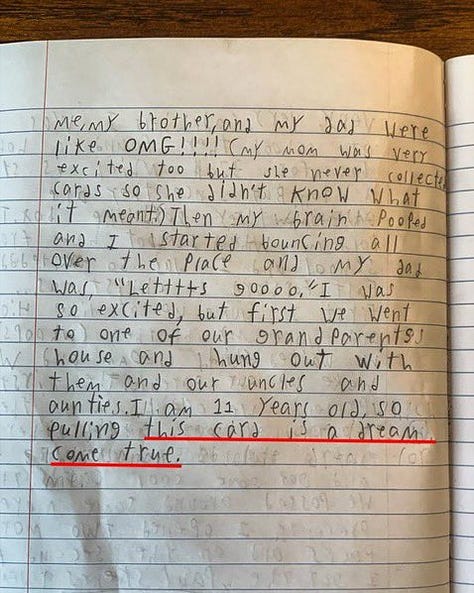 me, my brother, and my dad were
like OMG!!!! (my mom was very
excited too but she never collected
cards so she didn't know what
it meant.) Then my brain pooped
and I started bouncing all
over the place and my dad
was, "Letttts goooo." I was
so excited, but first we went
to one of our grandparents
house and hung out with
them and our uncles and
aunties. I am 11 years old, so
pulling this card is a dream
come true.